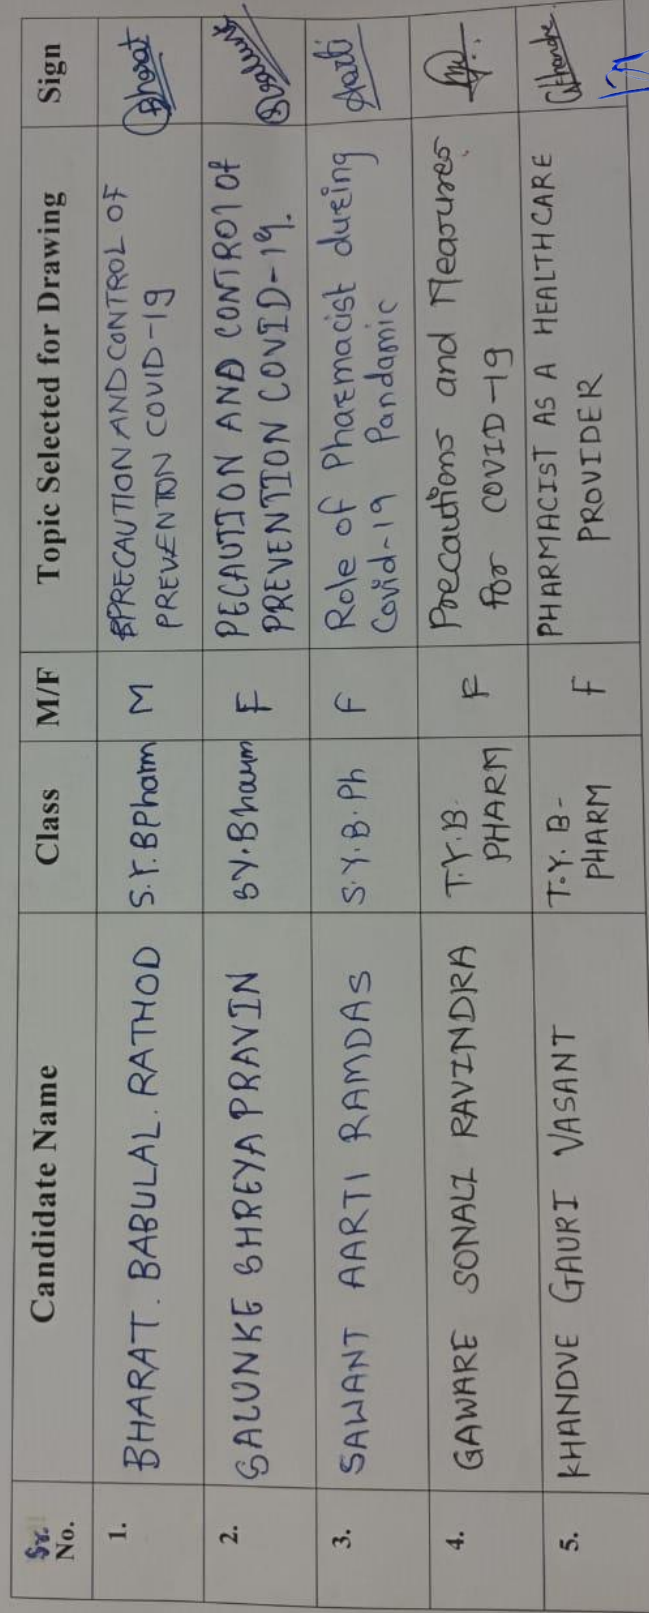 Sr. No. Candidate Name Class M/F Topic Selected for Drawing Sign
1. BHARAT. BABULAL. RATHOD S.Y.BPharm M PRECAUTION AND CONTROL OF Bharat
PREVENTION COVID-19
2. SALUNKE SHREYA PRAVIN SY.Bharm F PECAUTION AND CONTROl Of
PREVENTION COVID-19.
3. SAWANT AARTI RAMDAS S.Y.B.Ph F Role of Pharmacist during Aarti
Covid-19 Pandamic
4. GAWARE SONALI RAVINDRA T.Y.B. F Precautions and Measures
PHARM for COVID-19
5. KHANDVE GAURI VASANT T.Y. B- F PHARMACIST AS A HEALTHCARE
PHARM PROVIDER